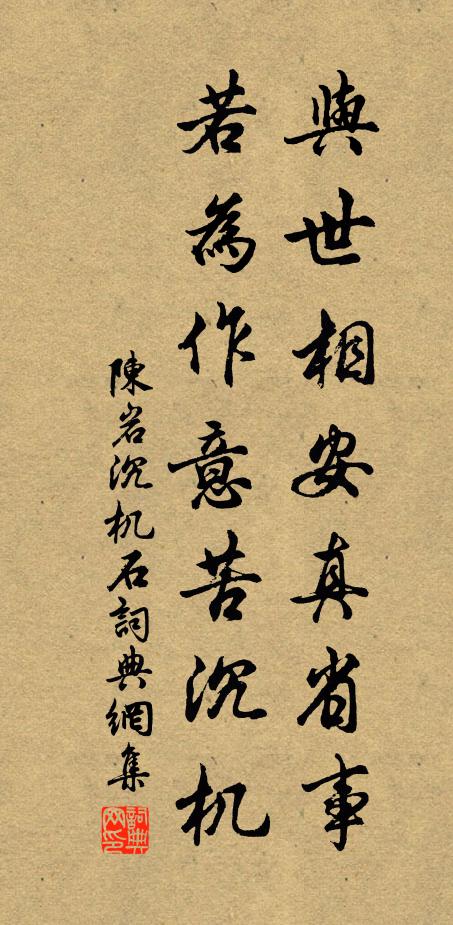 與世相安真省事
若為作意苦沉机
陳岩沉机石詞典網集
詞典
网印